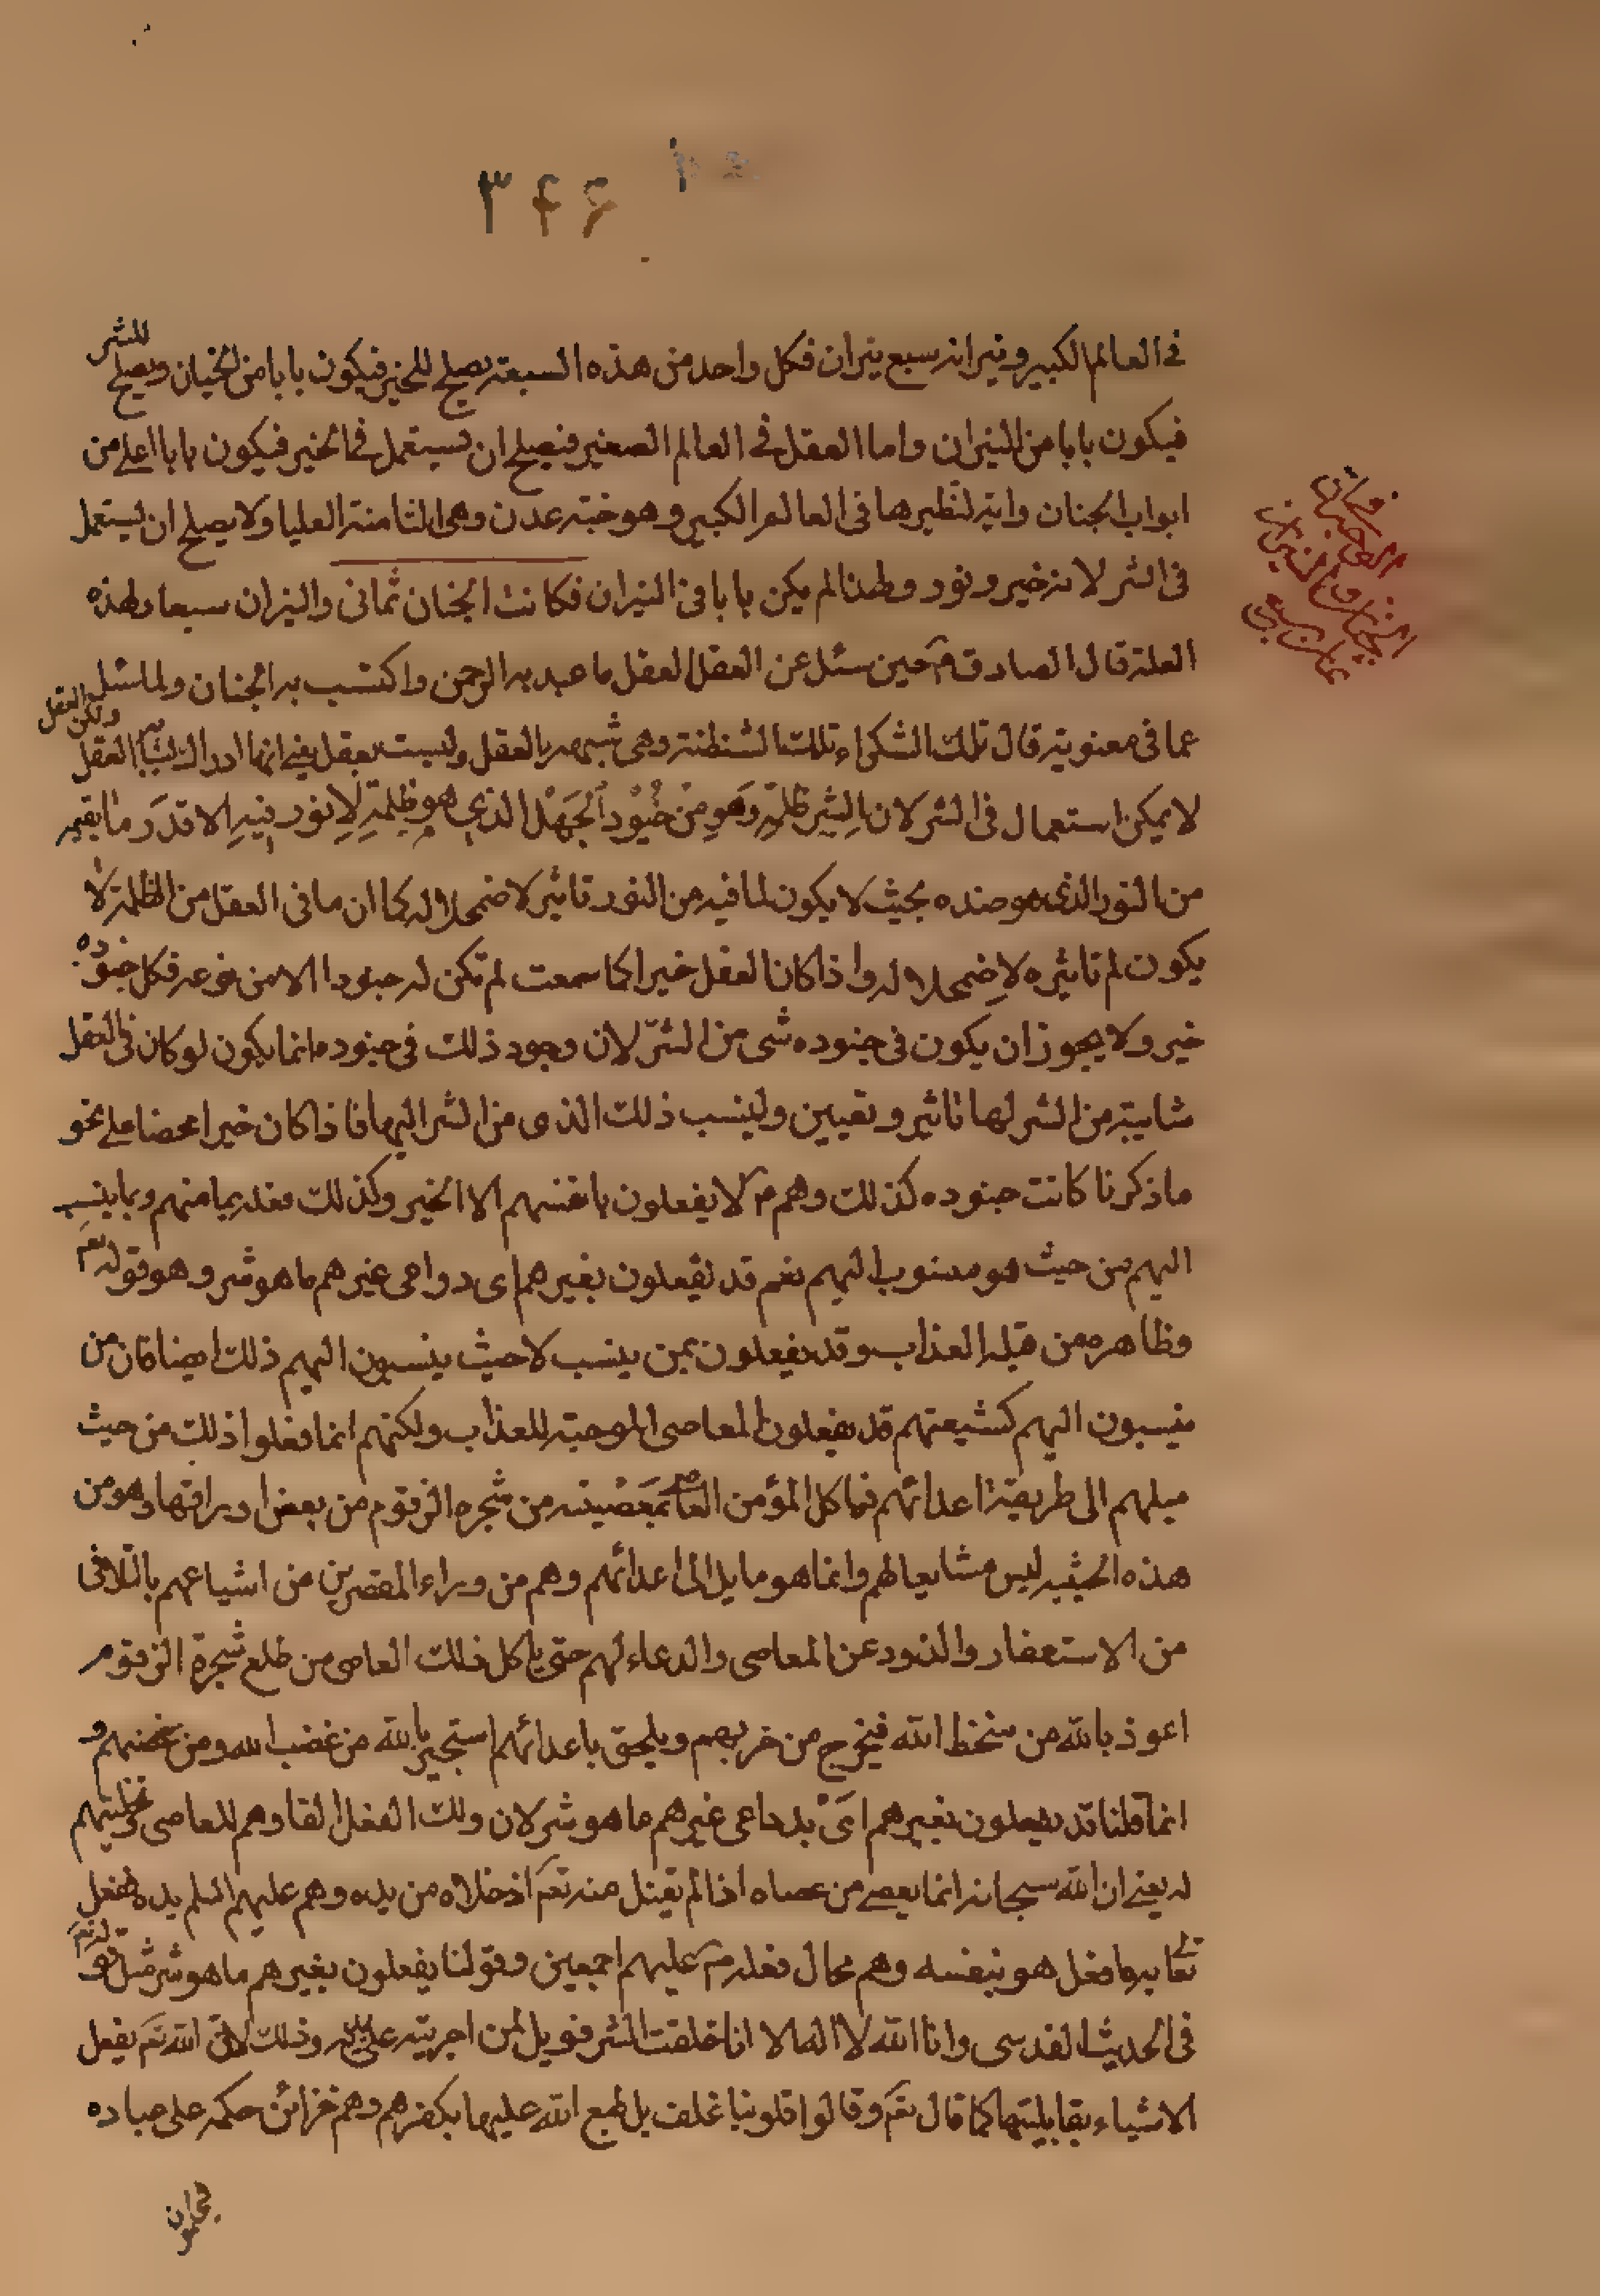 ۳۴۶
في العالم الكبير ونيرانه سبع نيران فكل واحد من هذه السبعة يصلح للخير فيكون بابا من الجنان ويصلح للشر
فيكون بابا من النيران واما العقل في العالم الصغير فيصلح ان يستعمل في الخير فيكون بابا اعلى من
ابواب الجنان وانه لنظيرها في العالم الكبير وهو جنة عدن وهي الثامنة العليا ولا يصلح ان يستعمل
في الشر لانه خير ونور ولهذا لم يكن بابا في النيران فكانت الجنان ثماني والنيران سبعا ولهذه
العلة قال الصادق م حين سئل عن العقل العقل ما عبد به الرحمن واكتسب به الجنان ولما سئل
عما في معوية قال تلك النكراء تلك الشيطنة وهي شبيهه بالعقل وليست بعقل يعني انها ادراك ولكن العقل
لا يمكن استعمال في الشر لان الشر ظلمة وهو من جنود الجهل الذي هو ظلمة لا نور فيه الا قدر ما يقيمه
من النور الذي هو ضده بحيث لا يكون لما فيه من النور تاثير لاضمحلاله كما ان ما في العقل من الظلمة لا
يكون لم تاثيره لاضمحلاله واذا كان العقل خيرا كما سمعت لم تكن له جنودا الا من نوعه فكل جنوده
خير ولا يجوز ان يكون في جنوده شئ من الشر لان وجود ذلك في جنوده انما يكون لو كان في العقل
شايبة من الشر لها تاثير وتعيين ولينسب ذلك الذي من الشر اليها فاذا كان خيرا محضا على نحو
ما ذكرنا كانت جنوده كذلك وهم م لا يفعلون بانفسهم الا الخير وكذلك فعله بما منهم وبما ينسب
اليهم من حيث هو منسوب اليهم نعم قد يفعلون بغيرهم اى دواعى غيرهم ما هو شر وهو قوله تع
وظاهره من قبله العذاب وقد يفعلون بمن ينسب لا حيث ينسبون اليهم ذلك ايضا فان من
ينسبون اليهم كشيعتهم قد يفعلون المعاصى الموجبة للعذاب ولكنهم انما فعلوا ذلك من حيث
ميلهم الى طريقة اعدائهم فياكل المؤمن العاصي بمعصيته من شجرة الزقوم من بعض اوراقها وهو من
هذه الحيثية ليس مشايعا لهم وانما هو مايل الى اعدائهم وهم من وراء المقصرين من اشياعهم بالتلافى
من الاستغفار والذود عن المعاصى والدعاء لهم حتى ياكل ذلك العاصى من طلع شجرة الزقوم
اعوذ بالله من سخط الله فيخرج من حزبهم ويلحق باعدائهم استجير بالله من غضب الله ومن غضبهم و
انما قلنا قد يفعلون بغيرهم اى بدواعى غيرهم ما هو شر لان ذلك الفعل القاوهم للعاصى وتخليتهم
له يعني ان الله سبحانه انما يعصى من عصاه اذا لم يقبل منه تع اذ خلاه من يده وهم عليهم السلم يده يفعل
تعالى بها فعل هو بنفسه وهم محال فعله م عليهم اجمعين وقولنا يفعلون بغيرهم ما هو شر مثل قوله تع
في الحديث القدسى وانا الله لا اله الا انا خلقت الشر فويل لمن اجريته على يديه وذلك لان الله تع يفعل
الاشياء بقابليتها كما قال تع وقالوا قلوبنا غلف بل طبع الله عليها بكفرهم وهم خزائن حكمه على عباده